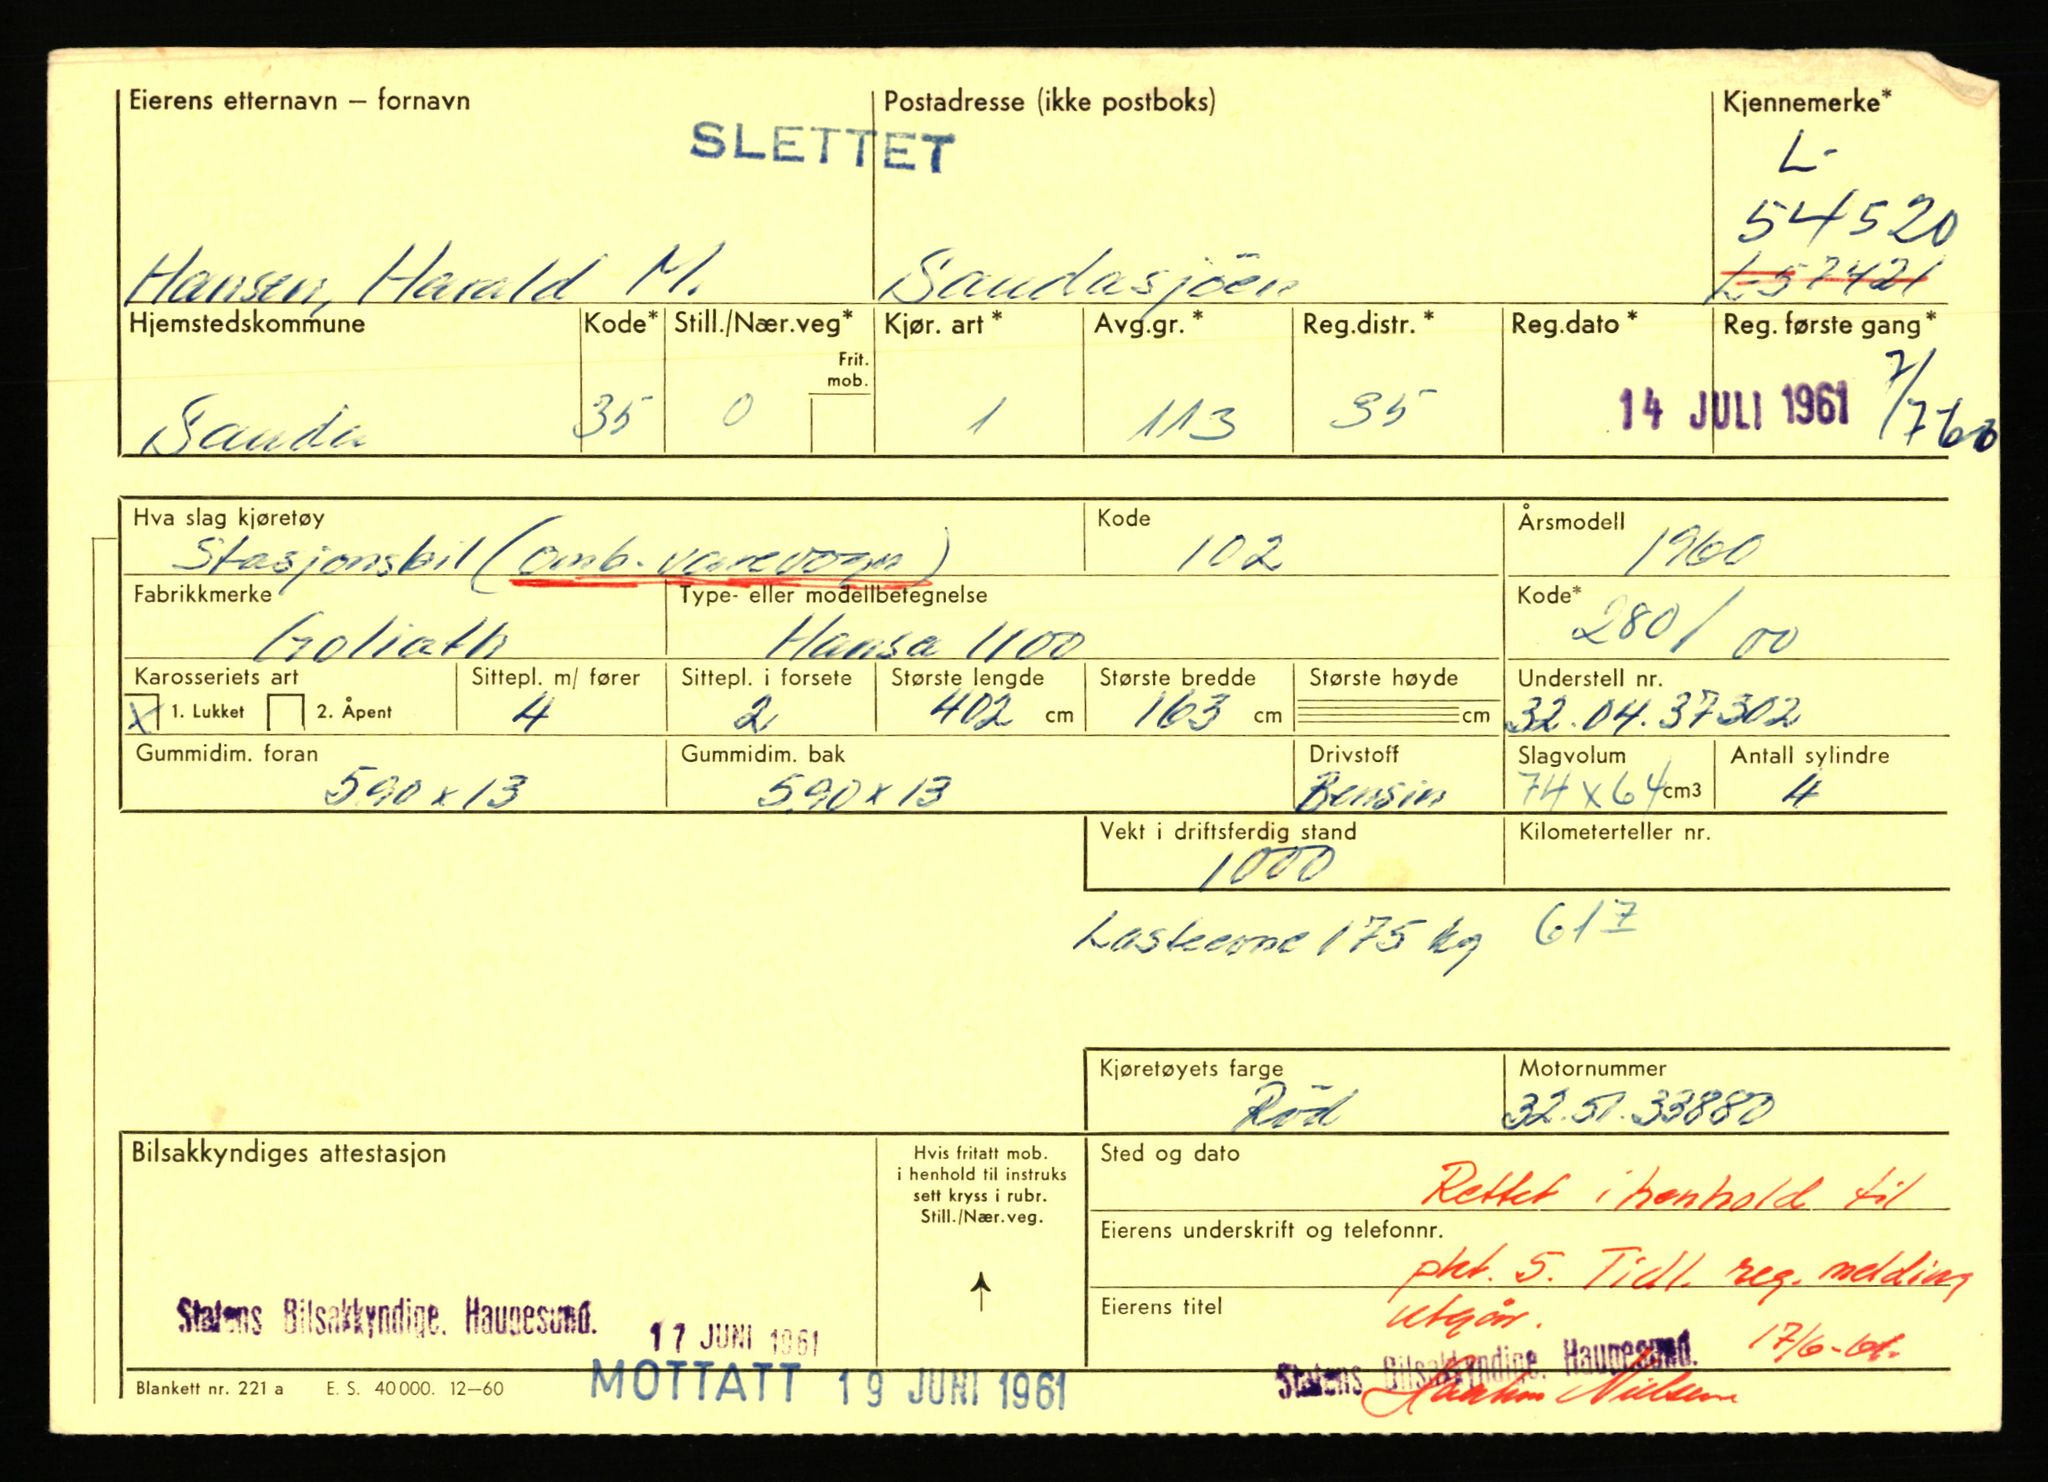 Eierens etternavn – fornavn Postadresse (ikke postboks) Kjennemerke*
SLETTET L-
54520
Hansen, Harald M. Saudasjöen L-57421
Hjemstedskommune Kode* Still./Nær.veg* Kjør. art* Avg.gr.* Reg.distr.* Reg.dato* Reg. første gang*
Frit.
mob.
Sauda 35 0 1 113 35 14 JULI 1961 7/7 60
Hva slag kjøretøy Kode Årsmodell
Stasjonsbil (omb. varevogn) 102 1960
Fabrikkmerke Type- eller modellbetegnelse Kode*
Goliath Hansa 1100 280/00
Karosseriets art Sittepl. m/ fører Sittepl. i forsete Største lengde Største bredde Største høyde Understell nr.
X 1. Lukket 2. Åpent 4 2 402 cm 163 cm cm 32.04.37302
Gummidim. foran Gummidim. bak Drivstoff Slagvolum Antall sylindre
590 x 13 590 x 13 Bensin 74 x 64 cm3 4
Vekt i driftsferdig stand Kilometerteller nr.
1000
Lasteevne 175 kg 617
Kjøretøyets farge Motornummer
Röd 32.51.33880
Bilsakkyndiges attestasjon Hvis fritatt mob. Sted og dato
i henhold til instruks
sett kryss i rubr. Rettet i henhold til
Still./Nær.veg.
Eierens underskrift og telefonnr.
pkt. 5. Tidl. reg. melding
Eierens titel
utgår.
Statens Bilsakkyndige. Haugesund. 17 JUNI 1961 17/6-61.
Statens Bilsakkyndige. Haugesund.
Blankett nr. 221 a E. S. 40 000. 12–60 MOTTATT 19 JUNI 1961 Haakon Nielsen